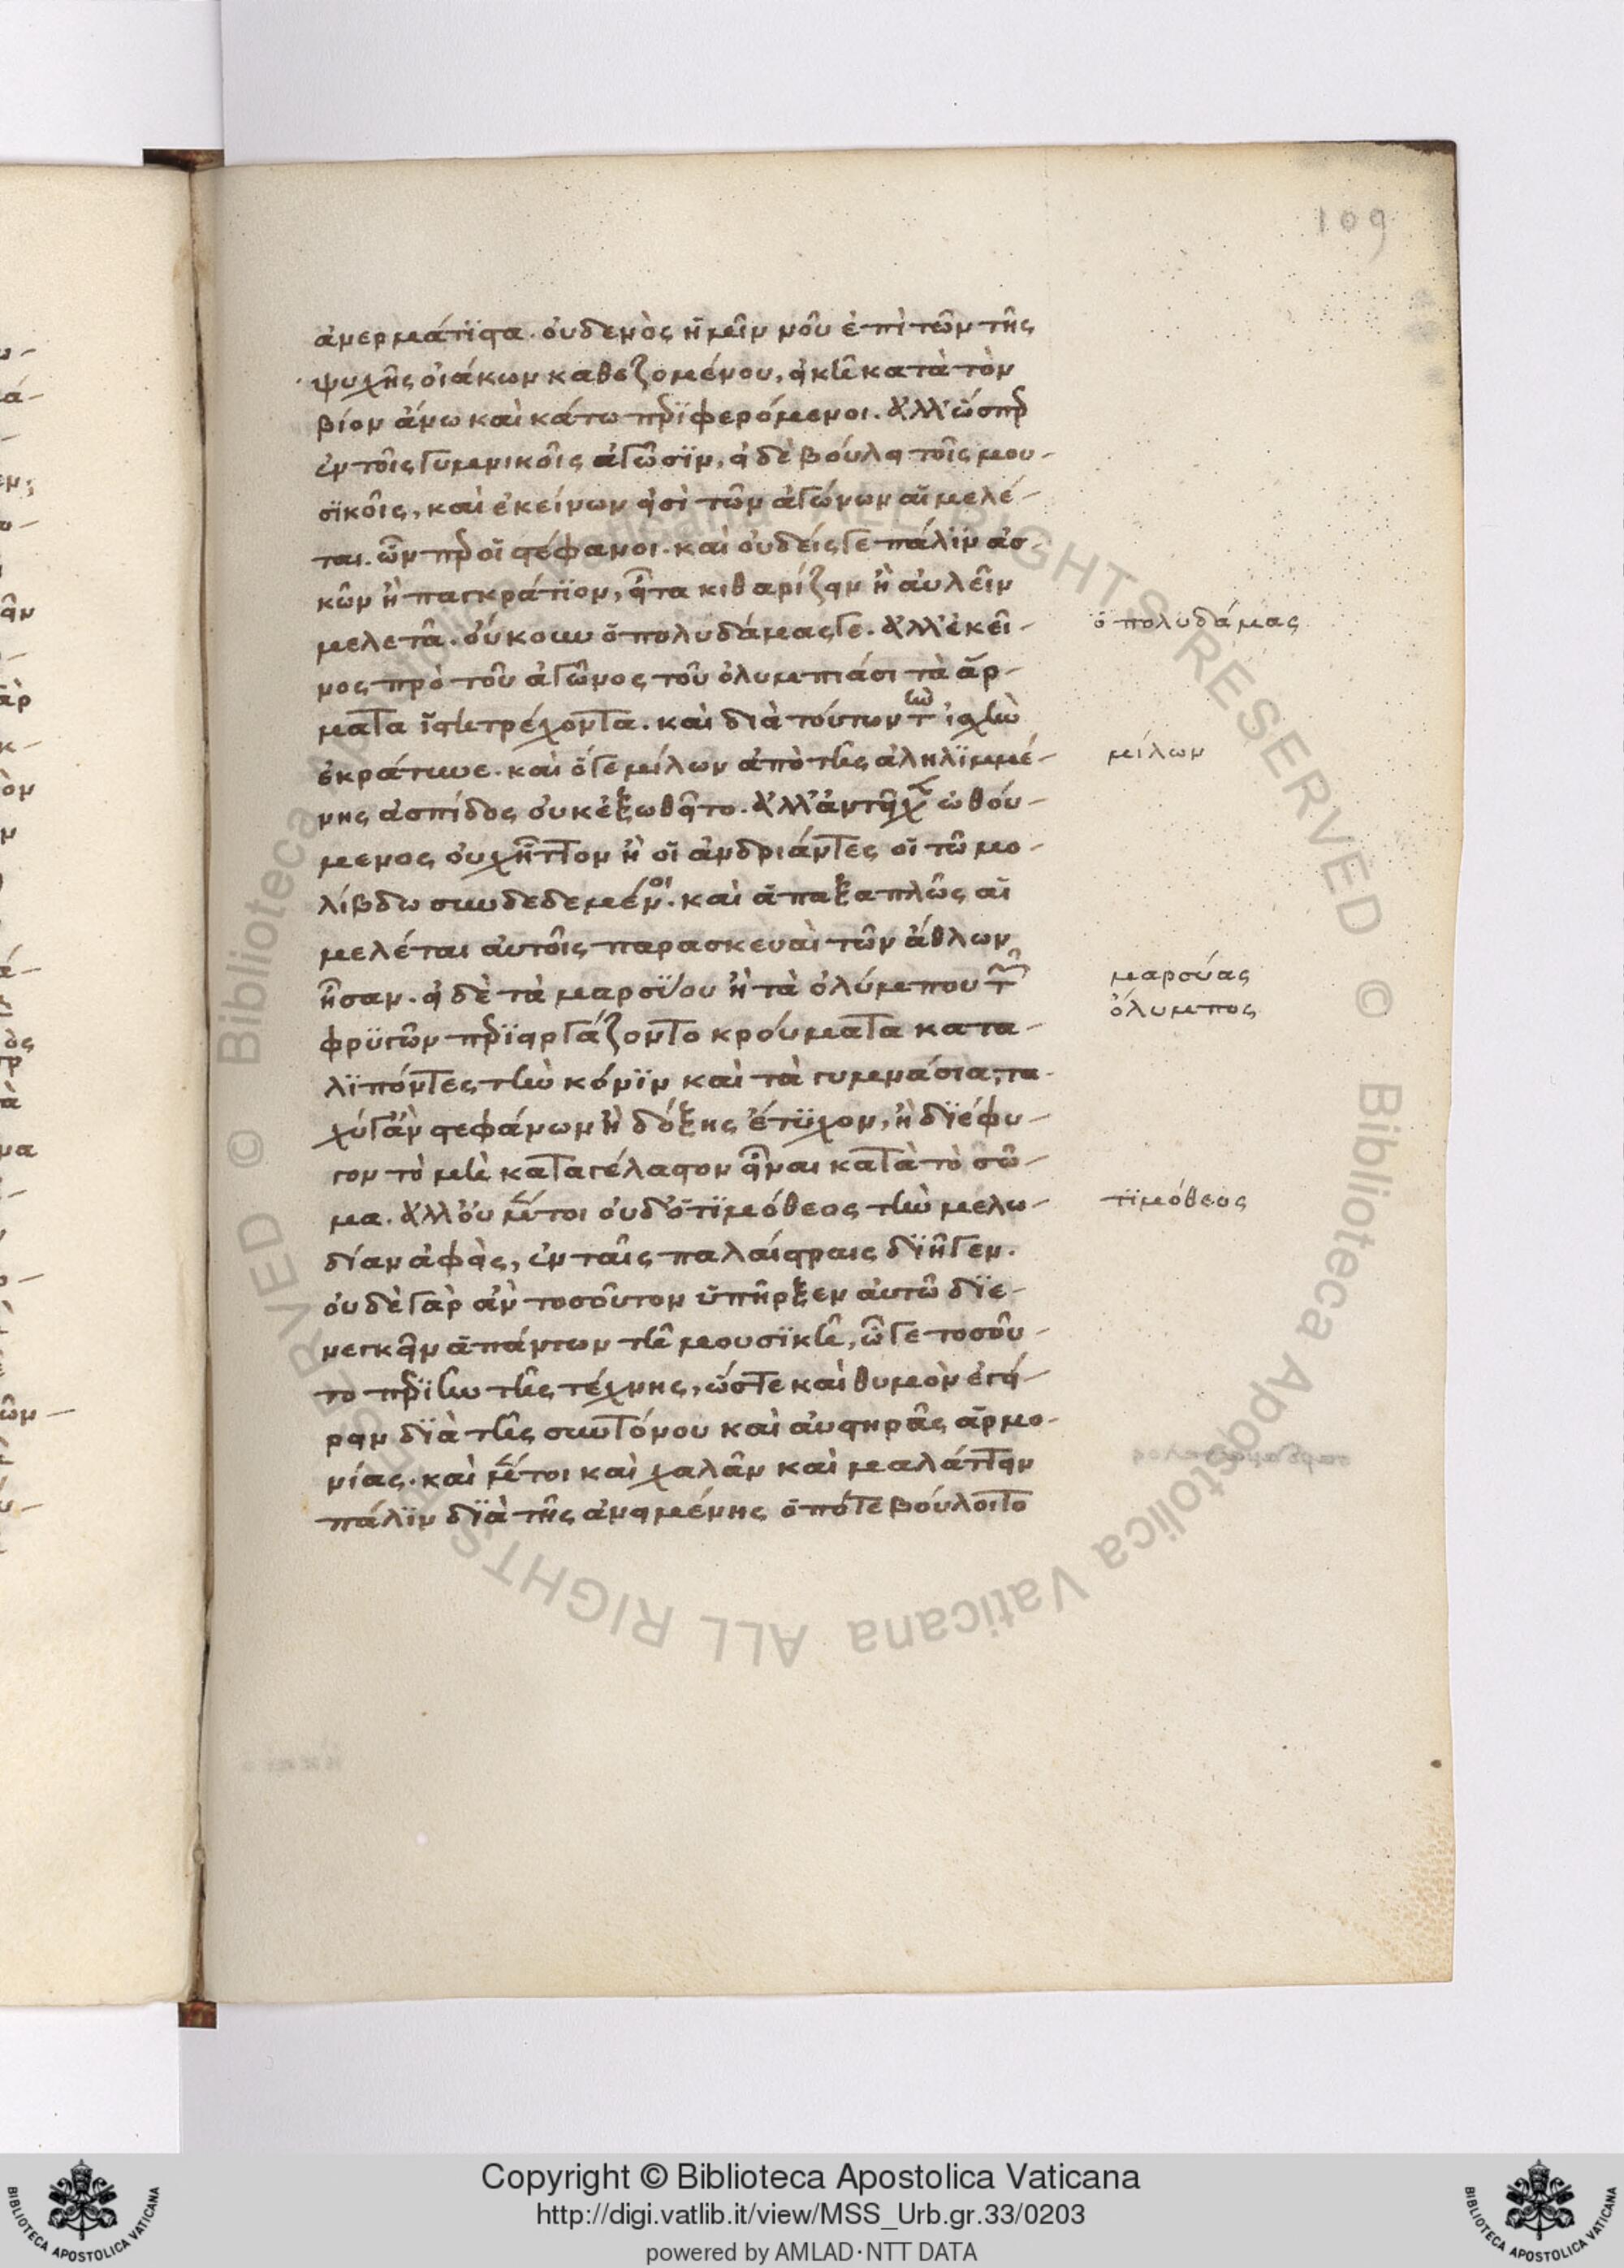 109
ἀνερμάτιστα. οὐδενὸς ἡμῖν νοῦ ἐπὶ τῶν τῆς
ψυχῆς οἰάκων καθεζομένου, εἰκῆ κατὰ τὸν
βίον ἄνω καὶ κάτω περιφερόμενοι. ἀλλ' ὥσπερ
ἐν τοῖς γυμνικοῖς ἀγῶσϊν, εἰ δὲ βούλει τοῖς μου-
σϊκοῖς, καὶ ἐκείνων εἰσὶ τῶν ἀγώνων αἱ μελέ-
ται. ὧν περ οἱ στέφανοι. καὶ οὐδείς γε πάλϊν ἀσ-
κῶν ἢ παγκράτϊον, εἶτα κιθαρίζειν ἢ αὐλεῖν
μελετᾶ. οὔκουν ὁ πολυδάμας γε. ἀλλ' ἐκεῖ-
νος πρὸ τοῦ ἀγῶνος τοῦ ὀλυμπιάσι τὰ ἅρ-
ματα ἵστη τρέχοντα. καὶ διὰ τούτων τὼ ἰσχὺν
ἐκράτυνε. καὶ ὅγε μίλων ἀπὸ τῆς ἀληλϊμμέ-
νης ἀσπίδος οὐκ ἐξωθεῖτο. ἀλλ' ἀντεῖχεν ὠθού-
μενος οὐχ ἧττον ἢ οἱ ἀνδριάντες οἱ τῶ μο-
λίβδω συνδεδεμένοι. καὶ ἁπαξαπλῶς αἱ
μελέται αὐτοῖς παρασκευαὶ τῶν ἄθλων
ἦσαν. εἰ δὲ τὰ μαρσϋου ἢ τὰ ὀλύμπου τῶν
φρϋγῶν περιειργάζοντο κρούματα κατα-
λϊπόντες τὴν κόνϊν καὶ τὰ γυμνάσια, τα-
χύγ' ἂν στεφάνων ἢ δόξης ἔτϋχον, ἢ δϊέφυ-
γον τὸ μὴ καταγέλαστον εἶναι κατὰ τὸ σῶ-
μα. ἀλλ' οὐ μέντοι οὐδ' ὁ τϊμόθεος τὴν μελω-
δίαν ἀφεὶς, ἐν ταῖς παλαίστραις δϊῆγεν.
οὐδὲ γὰρ ἂν τοσοῦτον ὑπῆρξεν αὐτῶ δϊε-
νεγκεῖν ἁπάντων τῆ μουσϊκῆ, ὧ γε τοσοῦ-
το περιῆν τῆς τέχνης, ὥστε καὶ θυμὸν ἐγεί-
ρειν δϊὰ τῆς συντόνου καὶ αὐστηρᾶς ἁρμο-
νίας. καὶ μέντοι καὶ χαλᾶν καὶ μαλάττειν
πάλϊν δϊὰ τῆς ἀνειμένης ὁπότε βούλοιτο
ὁ πολυδάμας
μίλων
μαρσύας
ὄλυμπος
τϊμόθεος
Copyright © Biblioteca Apostolica Vaticana
http://digi.vatlib.it/view/MSS_Urb.gr.33/0203
powered by AMLAD·NTT DATA